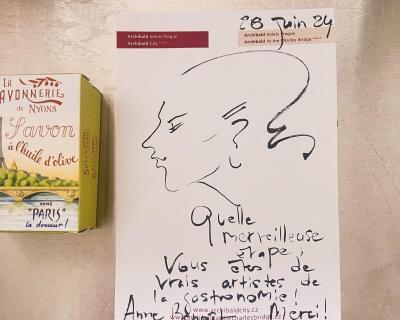 LA
SAVONNERIE
de NYONS
Savon
à l'huile d'olive
vous
"PARIS"
la douceur!
Archibald Hotels Prague
Archibald City ****
Archibald Hotels Prague
Archibald At the Charles Bridge ****
28 Juin 24
Quelle
merveilleuse
étape,
Vous êtes de
vrais artistes de
www.archibaldcity.cz
la gastronomie!
Anne
Merci!